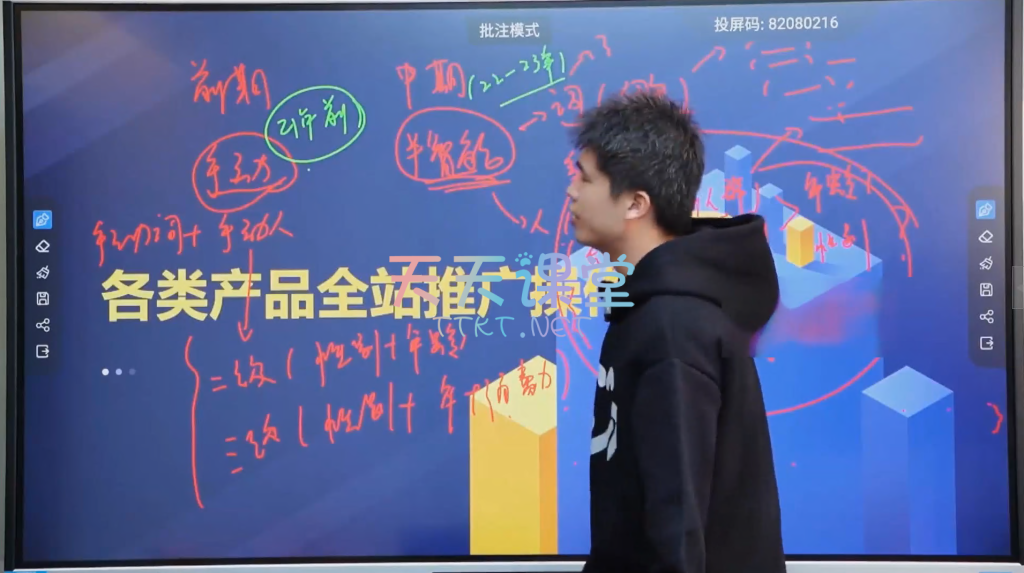 批注模式
投屏码: 82080216
前期
21年前
中期(22-23年)
词
手动
半智能
人
手动词+手动人
人群
年龄
性别
各类产品全站推广操
天天课堂
TTKT.NET
二次(性别+年龄
三次(性别+年+消费力